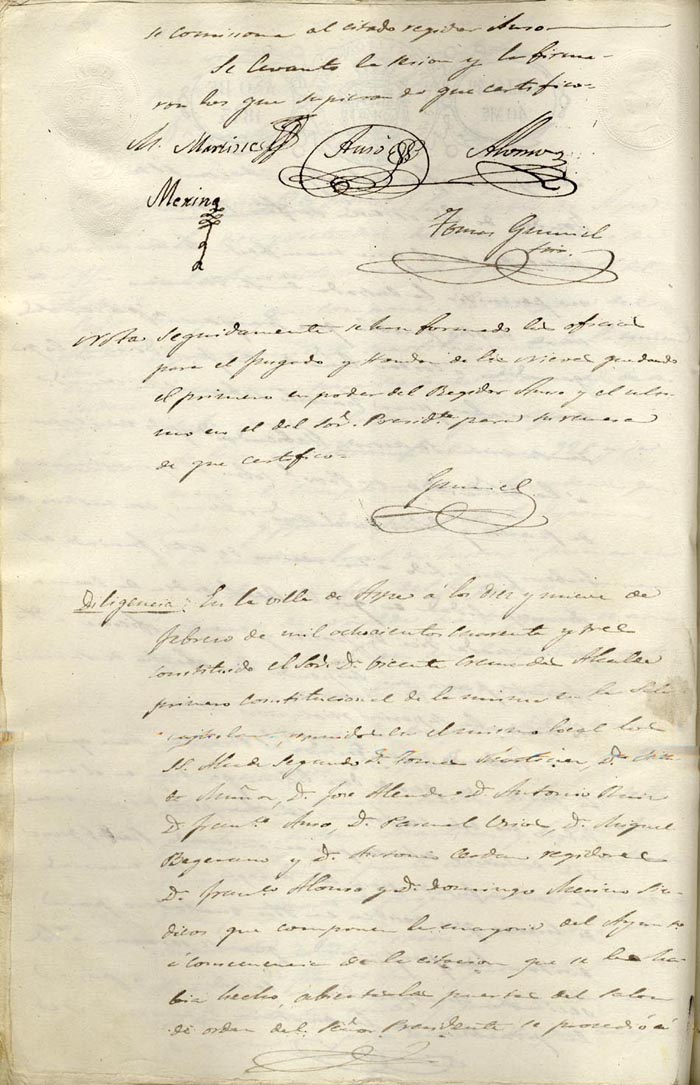 se comisiona al citado regidor Auso
Se levantó la sesion y la firma-
ron los que supieron de que certifico.
M. Martinez Ausó Alonso
Merino
Tomas Gumiel
srio.
Nota Seguidamente se han formado los oficios
para el Juzgado y de las Nieves quedando
el primero en poder del Regidor Auso y el ulti-
mo en el del Sor. Presidte. para su remesa
de que certifico.
Gumiel
Diligencia: En la villa de Aspe á los diez y nueve de
febrero de mil ochocientos cuarenta y tres
constituido el Sor. Dn. Vicente Cremades Alcalde
primero constitucional de la misma en la Sala
capitular, reunidos en el mismo local los
SS. Alcde. Segundo Dn. Tomas Martinez, Dn.
Muñoz, D. Jose Alenda, D. Antonio Ruiz
D. Franco. Auso, D. Pascual, D. Miguel
y Dn. Antonio Cerdan regidores
Dn. Franco. Alonso y Dn. Domingo Merino Sin-
dicos que componen la mayoria del Ayunto.
á consecuencia de la citacion que se les ha-
bia hecho, abiertas las puertas del salon
de orden del Señor Presidente se procedió á